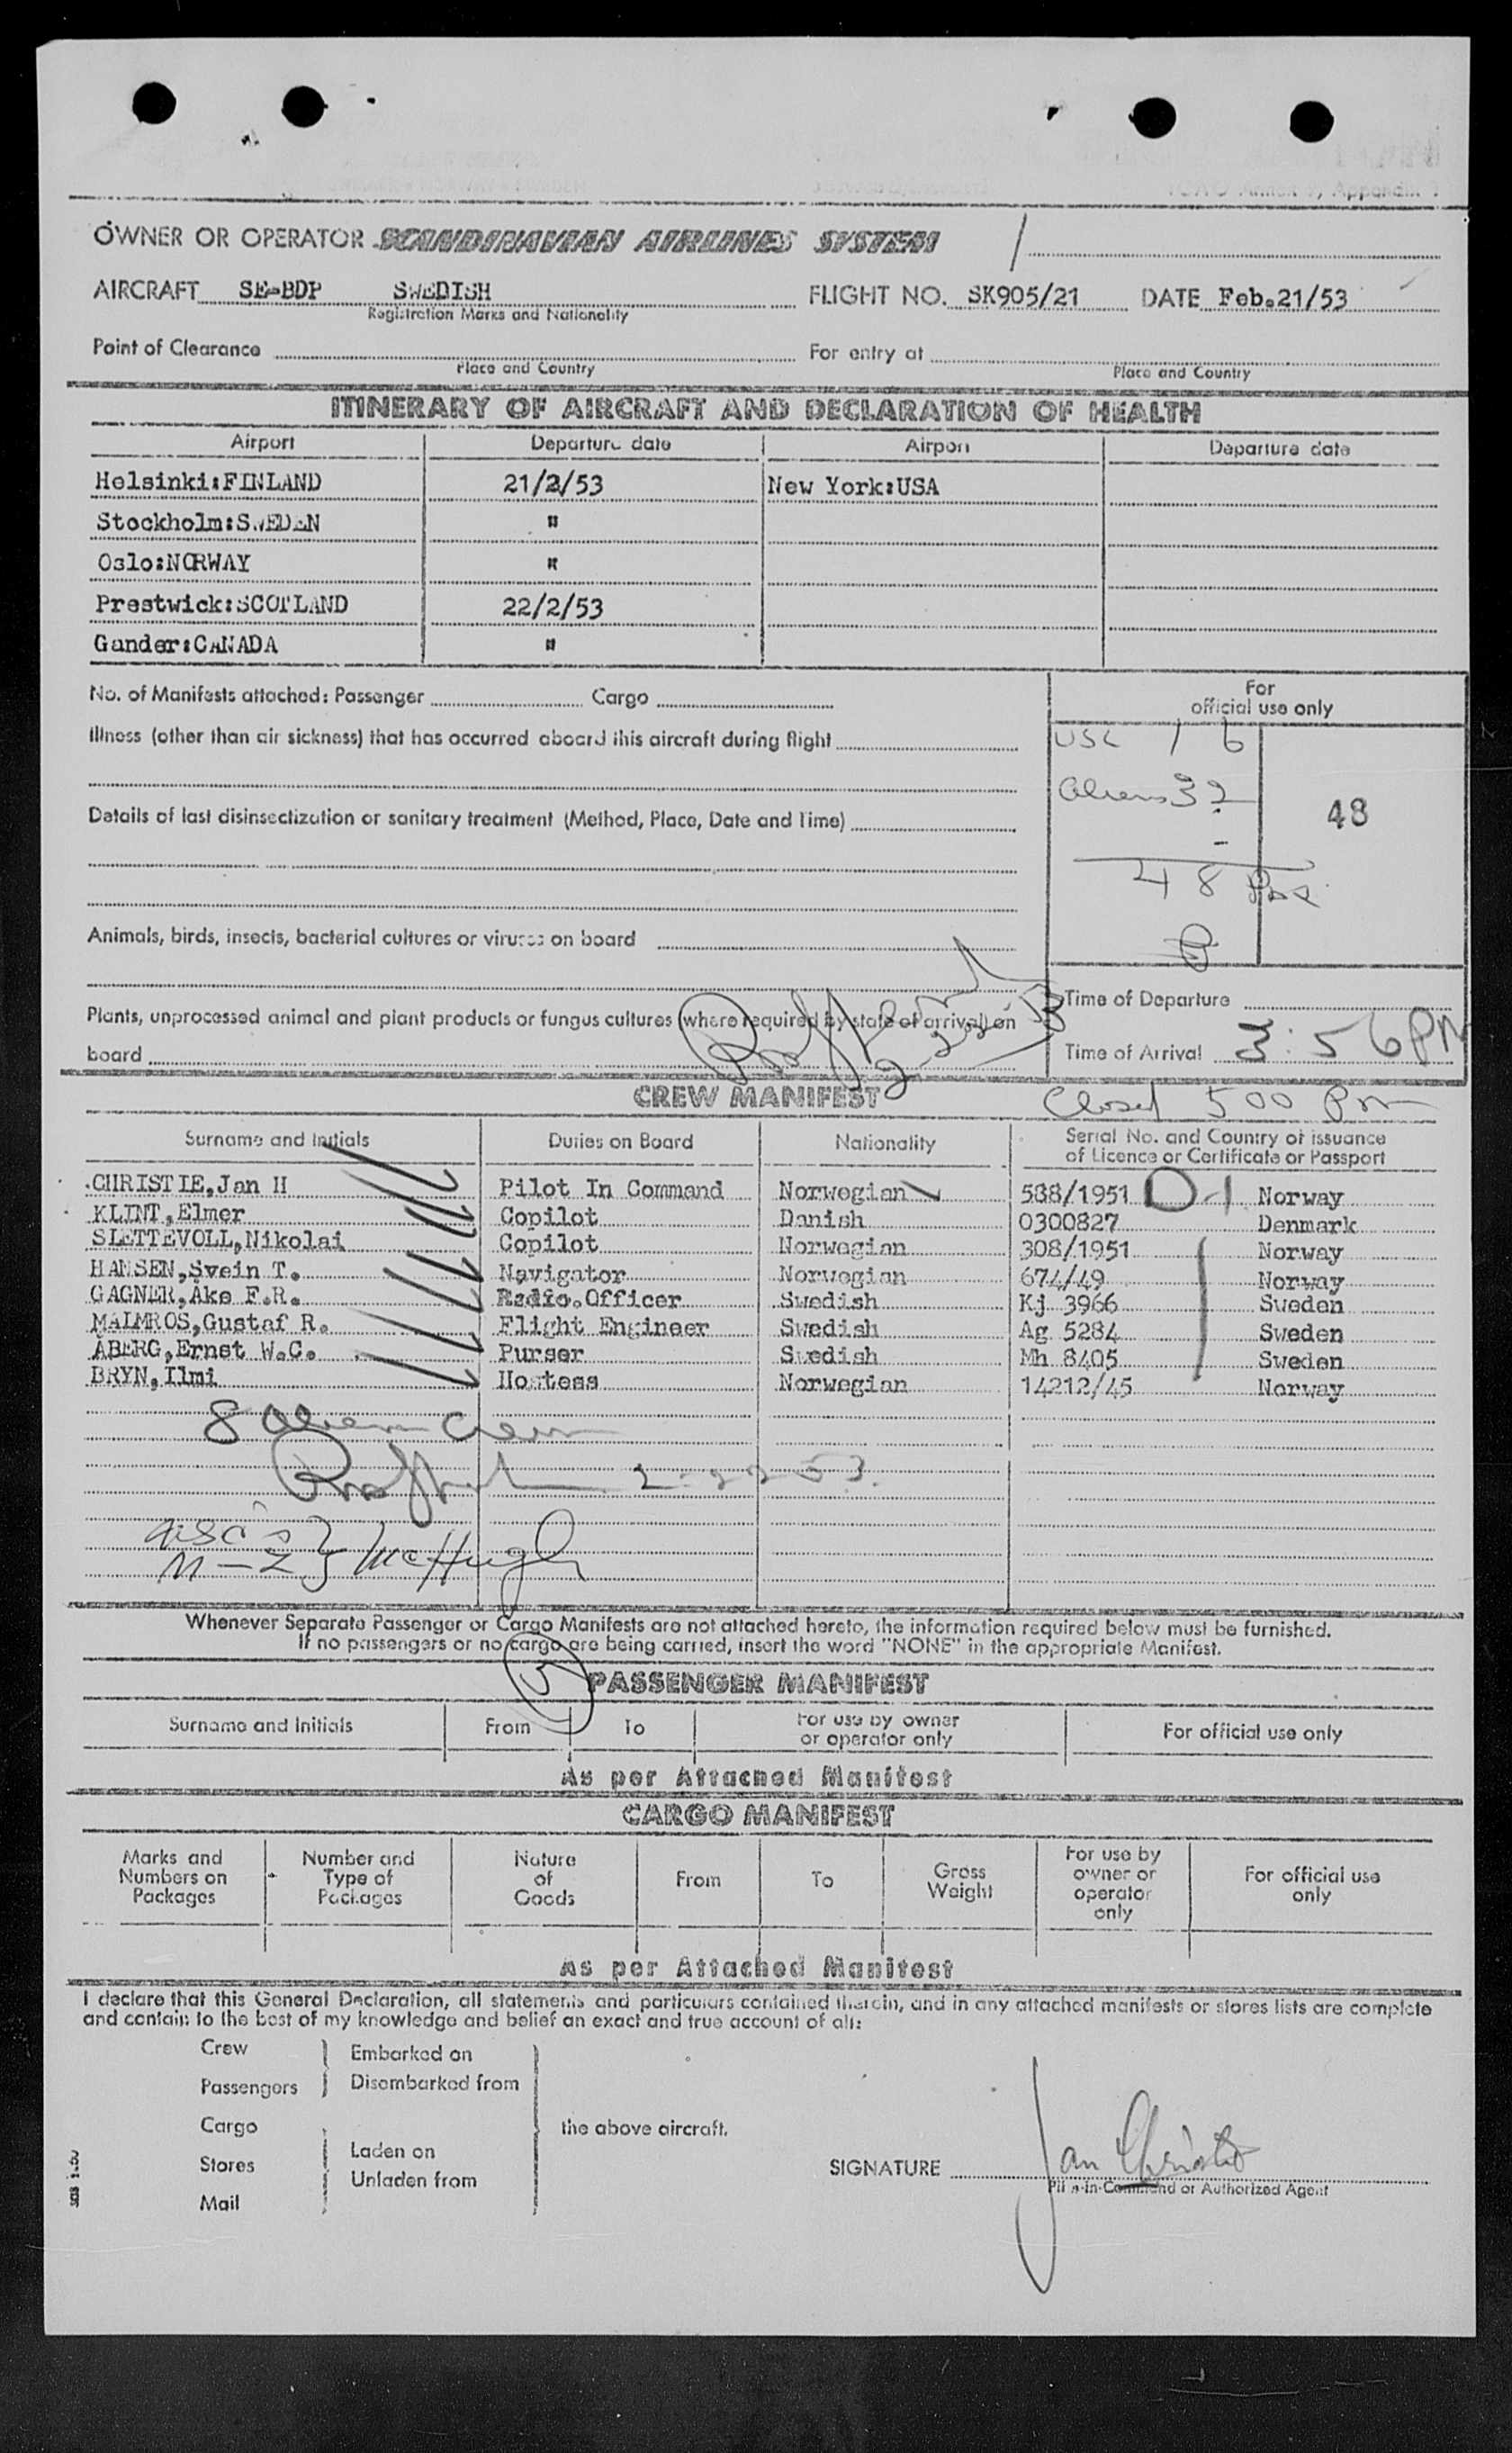 OWNER OR OPERATOR SCANDINAVIAN AIRLINES SYSTEM
AIRCRAFT SE-BDP SWEDISH FLIGHT NO. SK905/21 DATE Feb.21/53
Registration Marks and Nationality
Point of Clearance For entry at
Place and Country Place and Country
ITINERARY OF AIRCRAFT AND DECLARATION OF HEALTH
Airport Departure date Airport Departure date
Helsinki:FINLAND 21/2/53 New York:USA
Stockholm:SWEDEN "
Oslo:NORWAY "
Prestwick:SCOTLAND 22/2/53
Gander:CANADA "
No. of Manifests attached: Passenger Cargo
For
official use only
Illness (other than air sickness) that has occurred aboard this aircraft during flight
USC 16
Aliens 32
48
48 Pax
Details of last disinsectization or sanitary treatment (Method, Place, Date and Time)
Animals, birds, insects, bacterial cultures or viruses on board
Time of Departure
Plants, unprocessed animal and plant products or fungus cultures (where required by state of arrival) on
board
Time of Arrival 3:56 PM
CREW MANIFEST
Closed 500 Pm
Surname and Initials Duties on Board Nationality Serial No. and Country of issuance
of Licence or Certificate or Passport
CHRISTIE,Jan H Pilot In Command Norwegian 588/1951 D-1 Norway
KLINT,Elmer Copilot Danish 0300827 Denmark
SLETTEVOLL,Nikolai Copilot Norwegian 308/1951 Norway
HANSEN,Svein T. Navigator Norwegian 674/49 Norway
GAGNER,Ake F.R. Radio.Officer Swedish Kj 3966 Sweden
MALMROS,Gustaf R. Flight Engineer Swedish Ag 5284 Sweden
ABERG,Ernst W.C. Purser Swedish Mh 8405 Sweden
BRYN,Ilmi Hostess Norwegian 14212/45 Norway
8 Alien Crew
2-22-53
McHugh
Whenever Separate Passenger or Cargo Manifests are not attached hereto, the information required below must be furnished.
If no passengers or no cargo are being carried, insert the word "NONE" in the appropriate Manifest.
PASSENGER MANIFEST
Surname and Initials From To For use by owner
or operator only For official use only
As per Attached Manifest
CARGO MANIFEST
Marks and
Numbers on
Packages
Number and
Type of
Packages
Nature
of
Goods
From
To
Gross
Weight
For use by
owner or
operator
only
For official use
only
As per Attached Manifest
I declare that this General Declaration, all statements and particulars contained therein, and in any attached manifests or stores lists are complete
and contain to the best of my knowledge and belief an exact and true account of all:
Crew
Passengers
Embarked on
Disembarked from
Cargo
Stores
Mail
Laden on
Unladen from
the above aircraft.
SIGNATURE Jan Christie
Pilot-in-Command or Authorized Agent